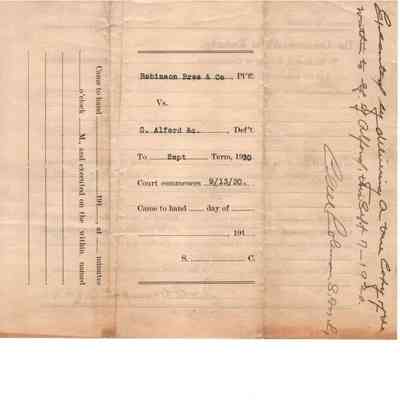 Came to hand 191 at minutes
o'clock M., and executed on the within named
Robinson Bros & Co., Pl'ff.
Vs.
C. Alford &c. Def't
To Sept Term, 1920
Court commences 9/13/20.
Came to hand day of
, 191
S. C.
Executed by delivering a true Copy of the
within to C. Alford, this Sept 7 - 1920